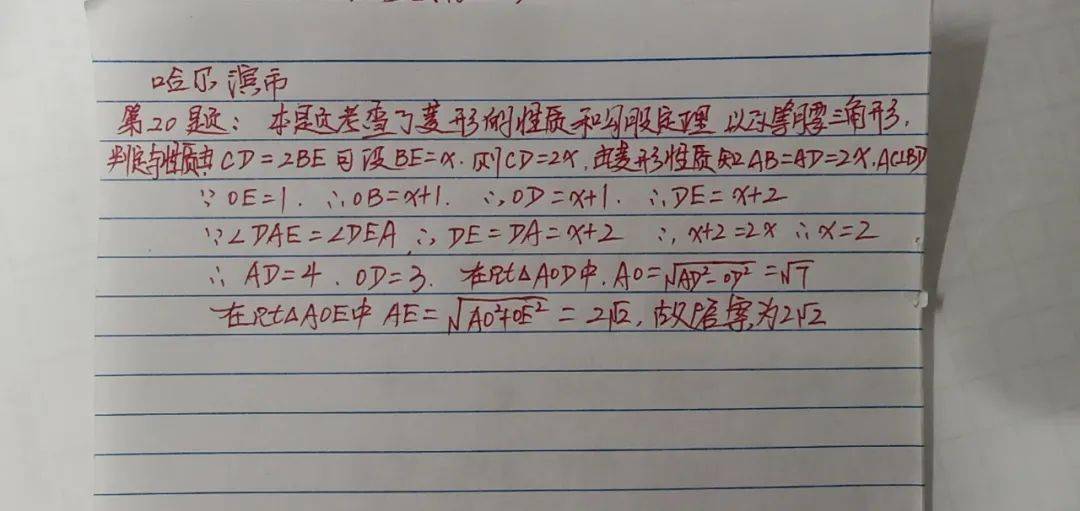 哈尔滨市
第20题: 本题考查了菱形的性质和勾股定理 以及等腰三角形,
判定与性质由CD=2BE可设BE=x.则CD=2x,由菱形性质知AB=AD=2x.AC⊥BD
∵OE=1.∴OB=x+1.∴OD=x+1.∴DE=x+2
∵∠DAE=∠DEA∴DE=DA=x+2 ∴x+2=2x∴x=2
∴AD=4.OD=3.在Rt△AOD中.AO=√AD²-OD²=√7
在Rt△AOE中 AE=√AO²+OE²=2√2,故答案为2√2